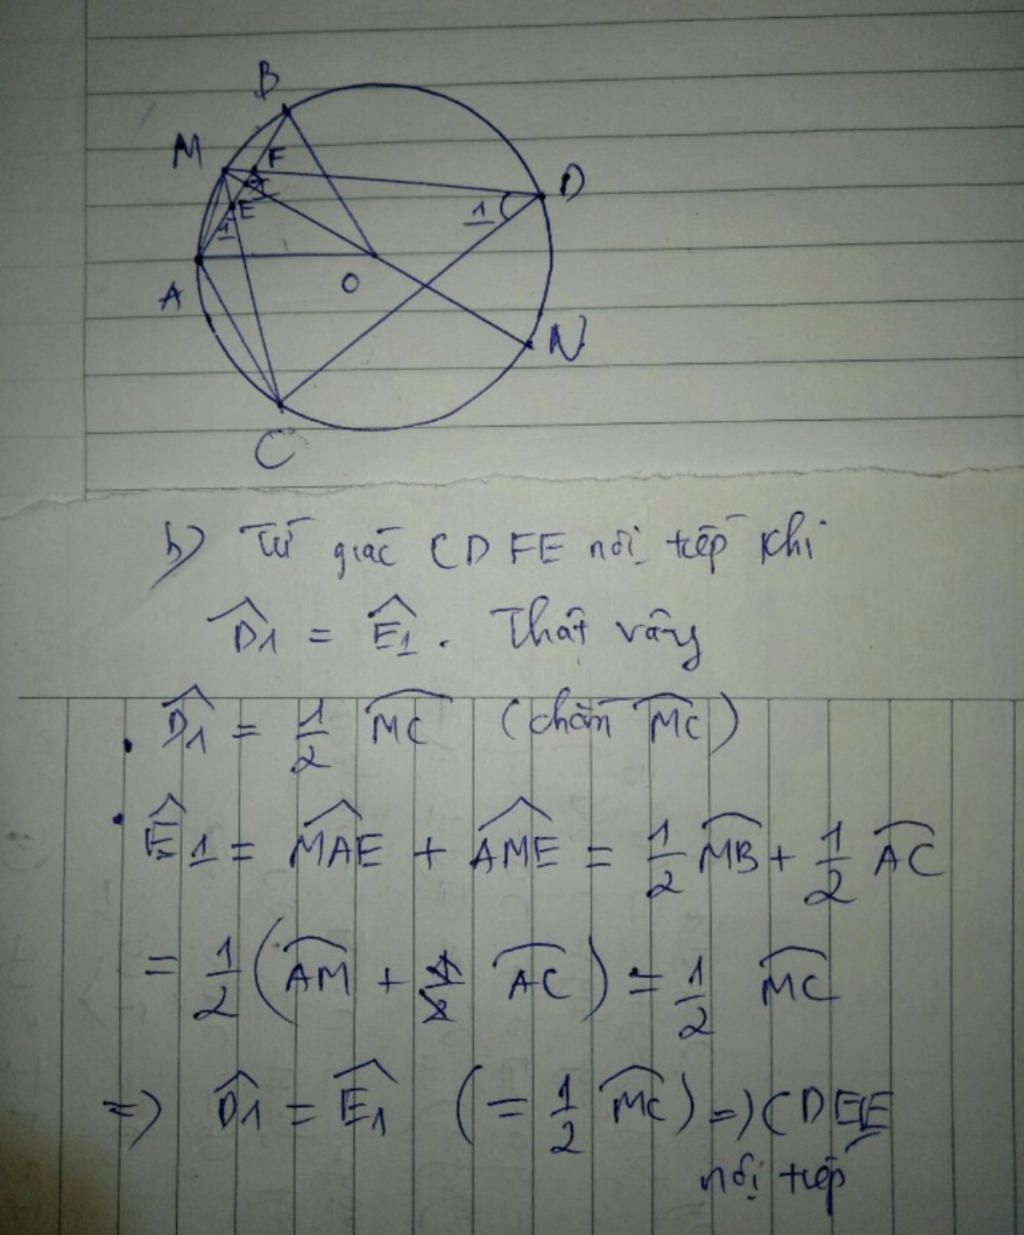 B
M F
I D
E 1
1
A O
N
C
b) Tứ giác CDFE nội tiếp khi
D̂1 = Ê1. Thật vậy
• D̂1 = 1/2 M͡C (chắn M͡C)
• Ê1 = M̂AE + ÂME = 1/2 M͡B + 1/2 A͡C
= 1/2 (A͡M + A͡C) = 1/2 M͡C
=> D̂1 = Ê1 (= 1/2 M͡C) => CDFE
nội tiếp